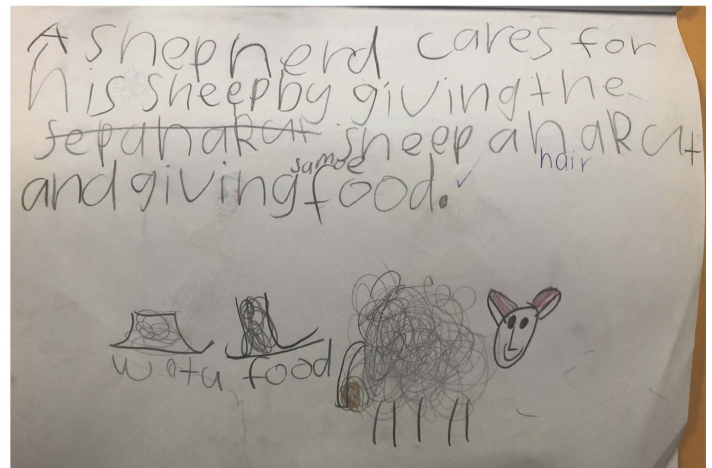 A shepherd cares for
his sheep by giving the
sepahakut sheep a hakut
hair
samoe
and giving food.
watu food